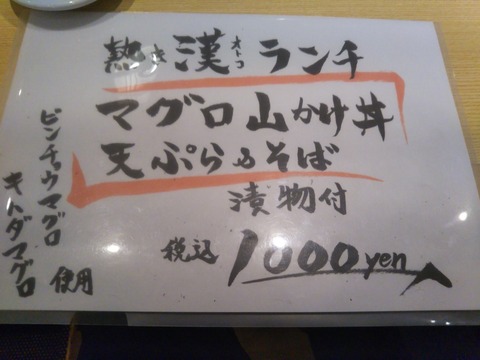 熱き漢ランチ
オトコ
マグロ山かけ丼
天ぷら&そば
漬物付
税込 1000yen
ビンチョウマグロ
キハダマグロ
使用